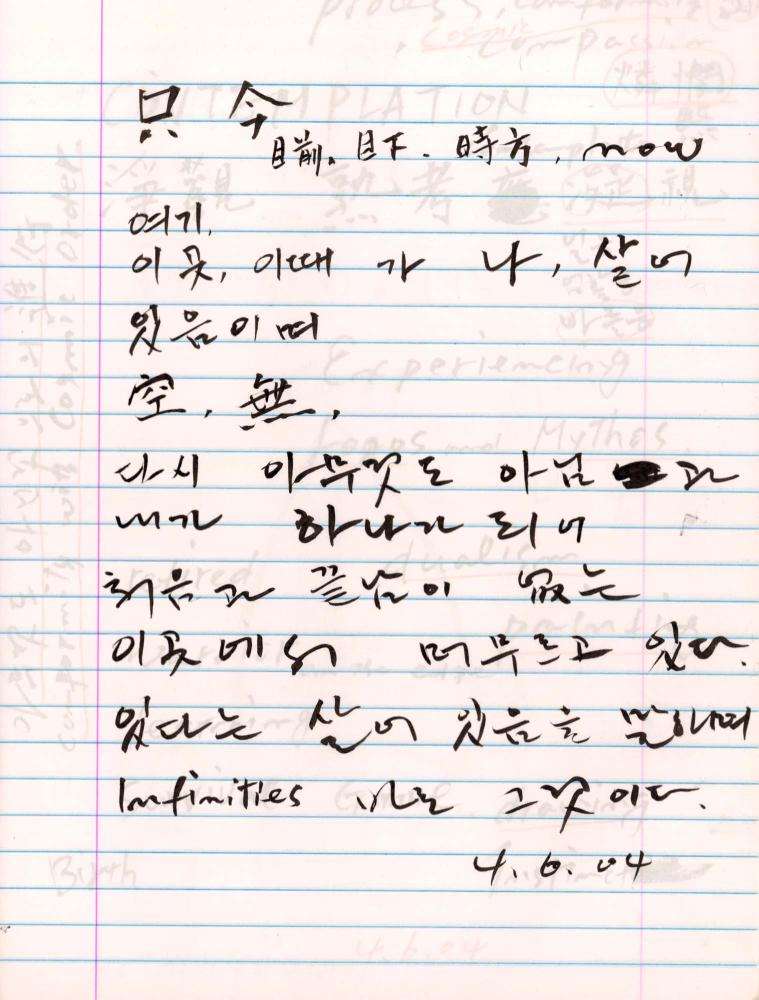 只今
目前. 目下. 時方, now
여기,
이 곳, 이때 가 나, 살어
있음이며
空, 無,
다시 아무것도 아님 과
내가 하나가 되어
처음과 끝남이 없는
이곳에서 머무르고 있다.
있다는 살어 있음을 말하며
Infinities 바로 그것이다.
4. 6. 04